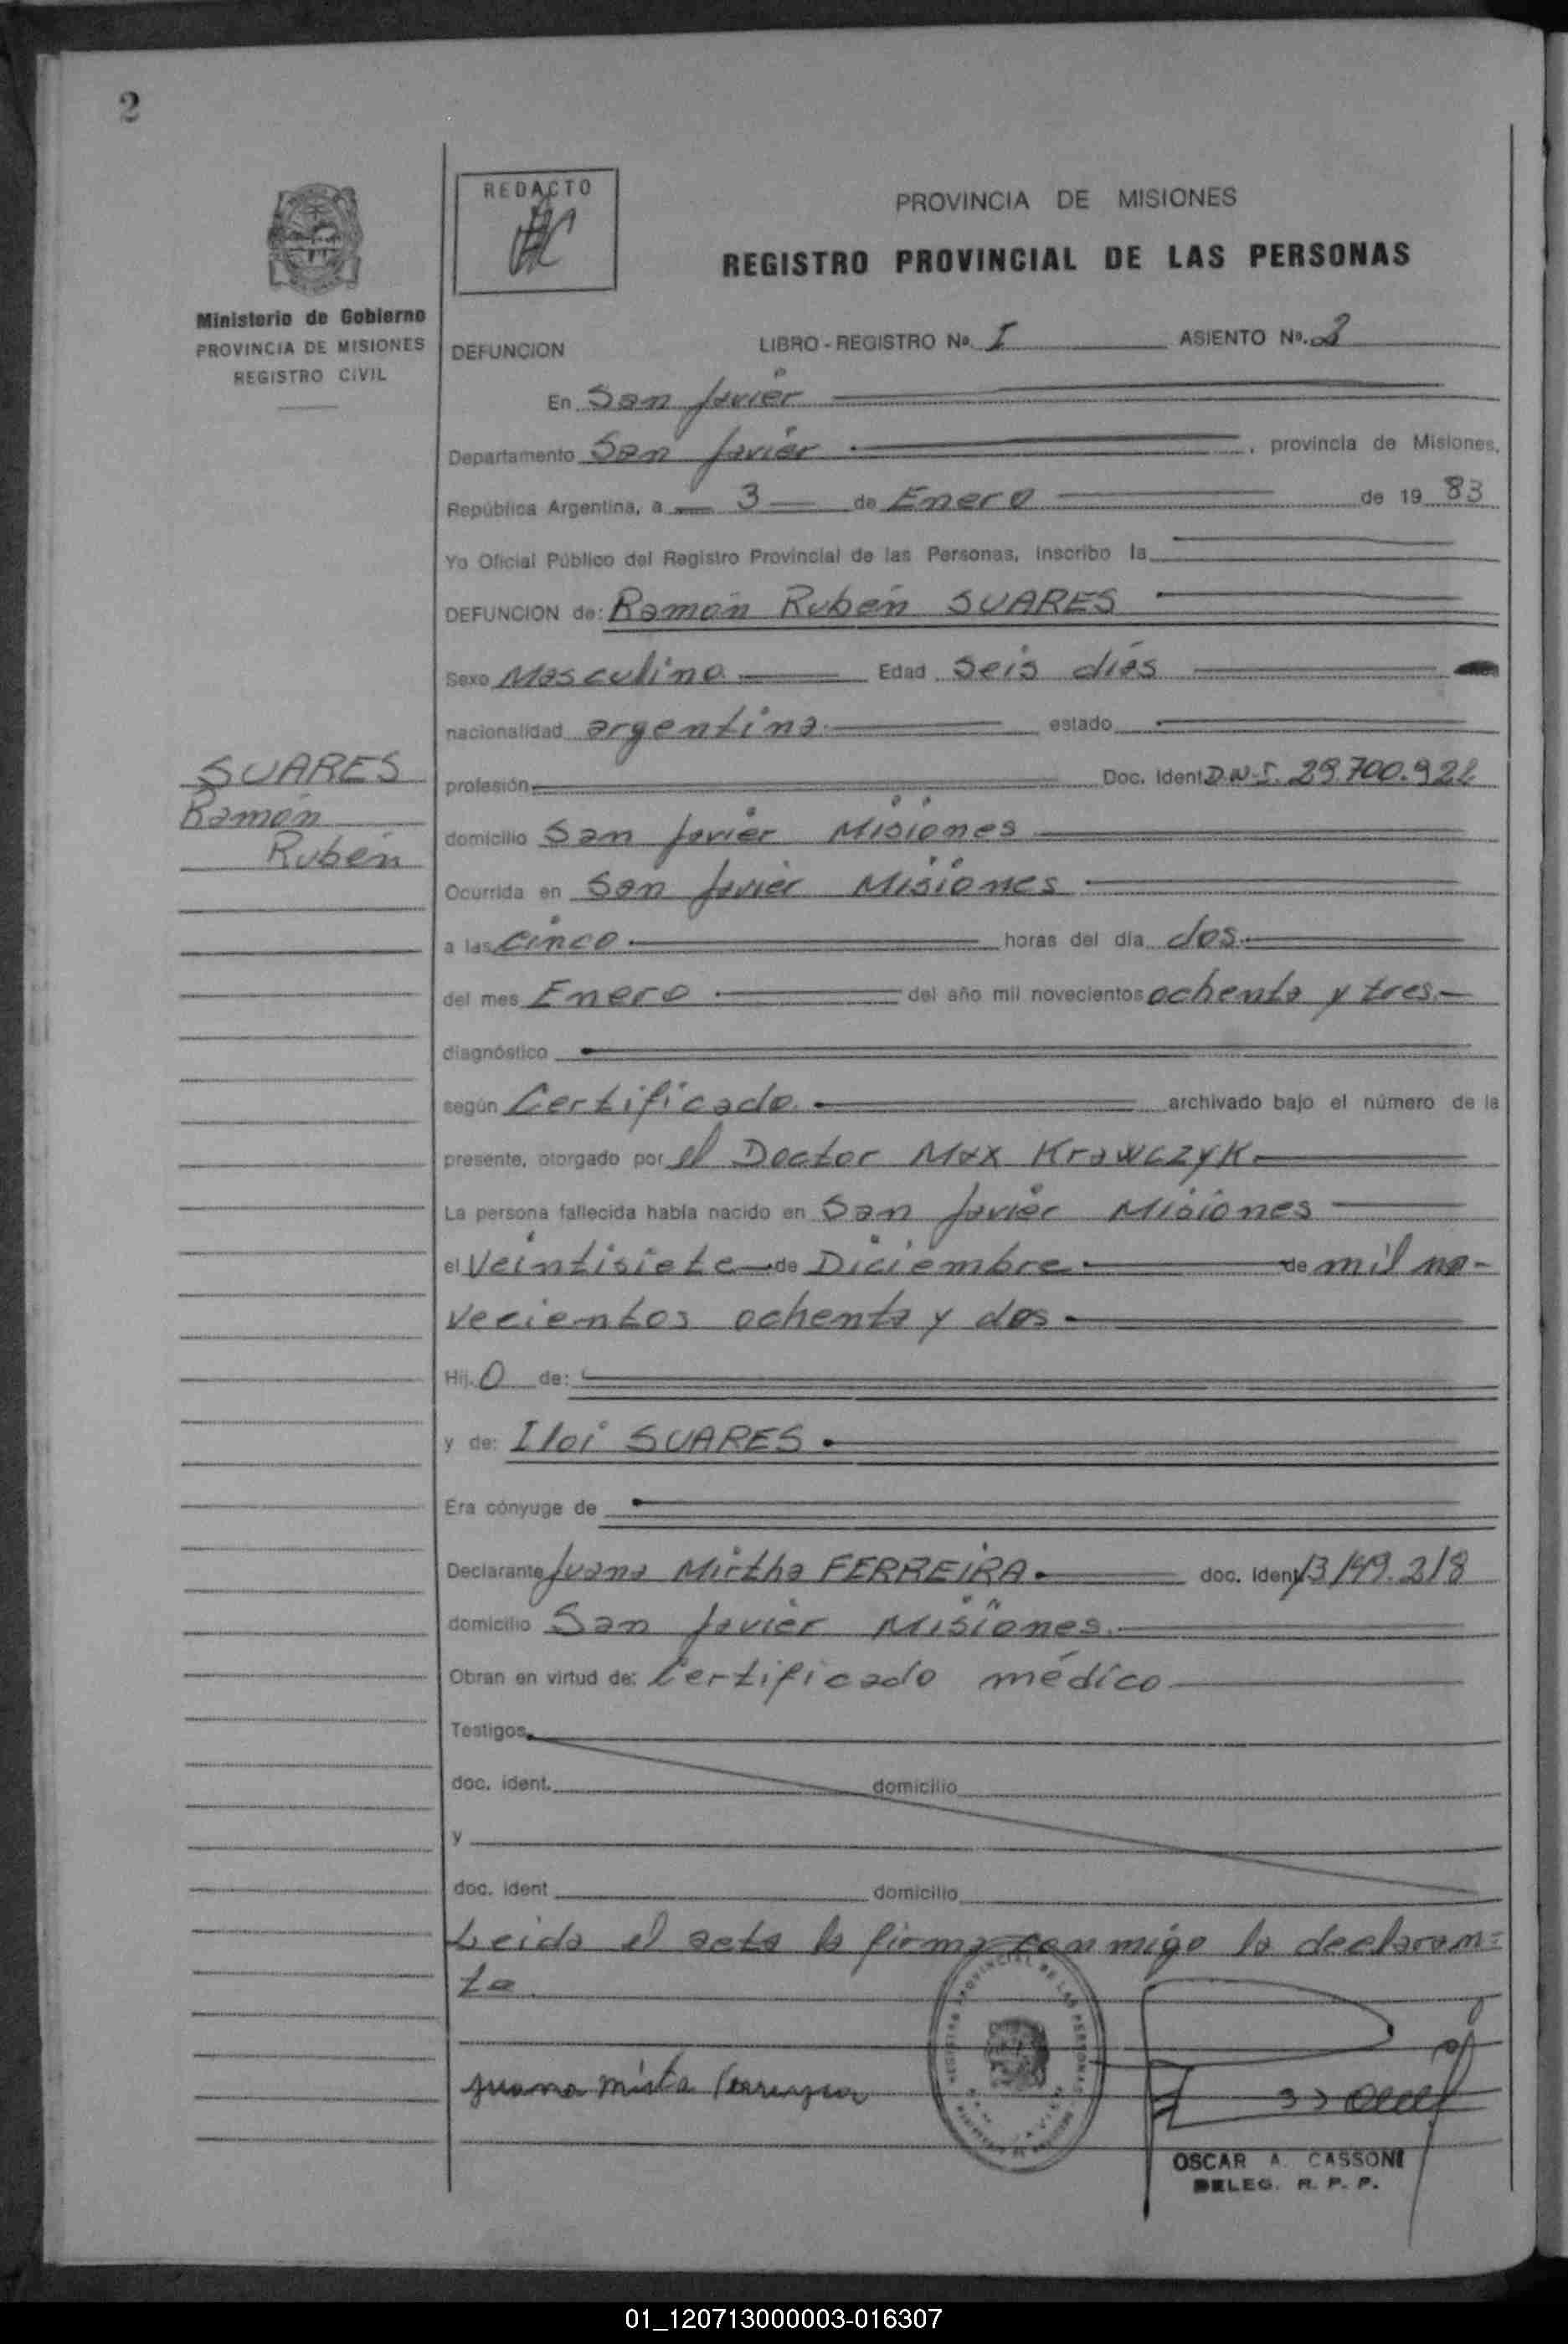 2
REDACTO
PROVINCIA DE MISIONES
REGISTRO PROVINCIAL DE LAS PERSONAS
Ministerio de Gobierno
PROVINCIA DE MISIONES
REGISTRO CIVIL
DEFUNCION LIBRO - REGISTRO Nº I ASIENTO Nº. 2
En San Javier
Departamento San Javier, provincia de Misiones,
República Argentina, a 3 de Enero de 19 83
Yo Oficial Público del Registro Provincial de las Personas, inscribo la
DEFUNCION de: Ramón Rubén SUARES
Sexo Masculino Edad Seis días
nacionalidad argentina estado
SUARES
Ramón
Rubén
profesión Doc. Ident D.N.I. 29.700.922
domicilio San Javier Misiones
Ocurrida en San Javier Misiones
a las cinco horas del día dos
del mes Enero del año mil novecientos ochenta y tres.
diagnóstico
según Certificado archivado bajo el número de la
presente, otorgado por el Doctor Max Krawczyk
La persona fallecida había nacido en San Javier Misiones
el Veintisiete de Diciembre de mil no-
vecientos ochenta y dos
Hij. O de:
y de: Iloi SUARES
Era cónyuge de
Declarante Juana Mirtha FERREIRA doc. ident 13.149.218
domicilio San Javier Misiones.
Obran en virtud de: Certificado médico
Testigos
doc. ident. domicilio
y
doc. ident domicilio
Leida el acta la firma conmigo la declaran=
te.
juana mirta
REGISTRO PROVINCIAL DE LAS PERSONAS
OSCAR A. CASSONI
DELEG. R. P. P.
01_120713000003-016307